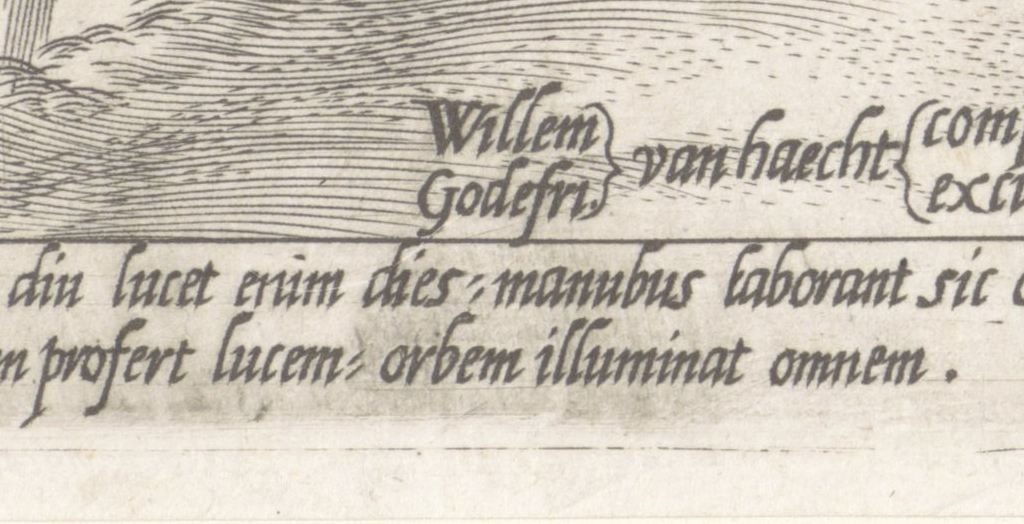 Willem
Godefri. } van haecht {
diu lucet enim dies: manubus laborant sic
profert lucem: orbem illuminat omnem.